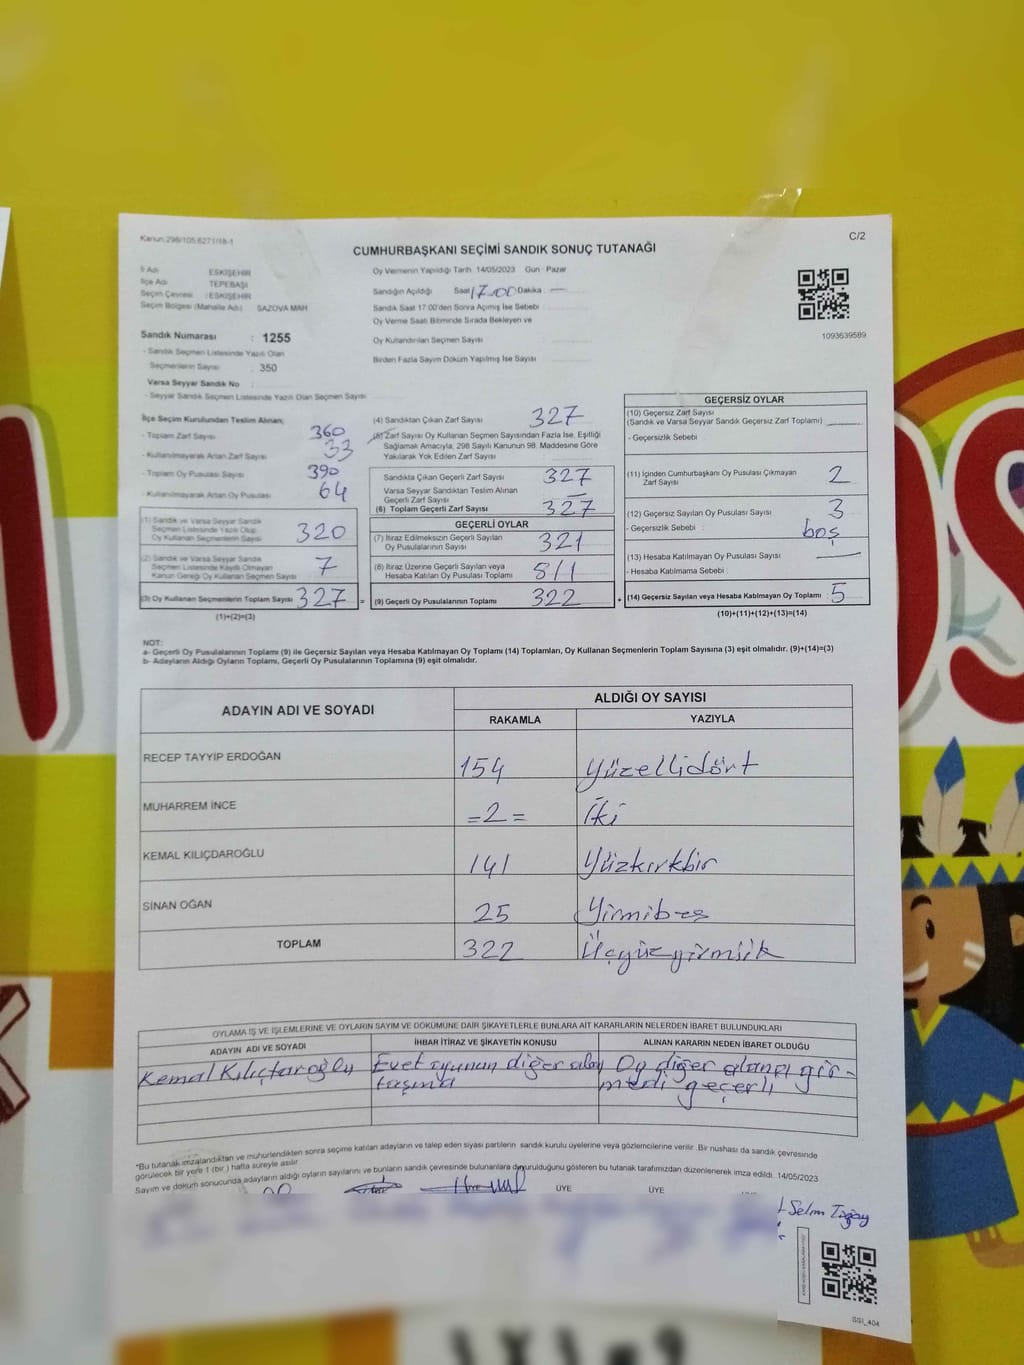 Kanun:298/105,6271/18-1
C/2
CUMHURBAŞKANI SEÇİMİ SANDIK SONUÇ TUTANAĞI
İl Adı : ESKİŞEHİR
İlçe Adı : TEPEBAŞI
Seçim Çevresi : ESKİŞEHİR
Seçim Bölgesi (Mahalle Adı) : SAZOVA MAH
Oy Vermenin Yapıldığı Tarih 14/05/2023 Gün : Pazar
Sandığın Açıldığı Saat 17.00 Dakika —
Sandık Saat 17:00'den Sonra Açımış İse Sebebi
Oy Verme Saati Bitiminde Sırada Bekleyen ve
Oy Kullandırılan Seçmen Sayısı
Birden Fazla Sayım Döküm Yapılmış İse Sayısı
1093639589
Sandık Numarası : 1255
- Sandık Seçmen Listesinde Yazılı Olan
Seçmenlerin Sayısı : 350
Varsa Seyyar Sandık No :
- Seyyar Sandık Seçmen Listesinde Yazılı Olan Seçmen Sayısı
İlçe Seçim Kurulundan Teslim Alınan;
- Toplam Zarf Sayısı 360
- Kullanılmayarak Artan Zarf Sayısı 33
- Toplam Oy Pusulası Sayısı 390
- Kullanılmayarak Artan Oy Pusulası 64
(1) Sandık ve Varsa Seyyar Sandık
Seçmen Listesinde Yazılı Olup
Oy Kullanan Seçmenlerin Sayısı 320
(2) Sandık ve Varsa Seyyar Sandık
Seçmen Listesinde Kaydı Olmayan
Kanun Gereği Oy Kullanan Seçmen Sayısı 7
(3) Oy Kullanan Seçmenlerin Toplam Sayısı 327 =
(1)+(2)=(3)
(4) Sandıktan Çıkan Zarf Sayısı 327
(5) Zarf Sayısı Oy Kullanan Seçmen Sayısından Fazla İse, Eşitliği
Sağlamak Amacıyla, 298 Sayılı Kanunun 98. Maddesine Göre
Yakılarak Yok Edilen Zarf Sayısı
Sandıkta Çıkan Geçerli Zarf Sayısı 327
Varsa Seyyar Sandıktan Teslim Alınan
Geçerli Zarf Sayısı —
(6) Toplam Geçerli Zarf Sayısı 327
GEÇERLİ OYLAR
(7) İtiraz Edilmeksizin Geçerli Sayılan
Oy Pusulalarının Sayısı 321
(8) İtiraz Üzerine Geçerli Sayılan veya
Hesaba Katılan Oy Pusulası Toplamı 5/1
(9) Geçerli Oy Pusulalarının Toplamı 322 +
GEÇERSİZ OYLAR
(10) Geçersiz Zarf Sayısı
(Sandık ve Varsa Seyyar Sandık Geçersiz Zarf Toplamı)
- Geçersizlik Sebebi
(11) İçinden Cumhurbaşkanı Oy Pusulası Çıkmayan
Zarf Sayısı 2
(12) Geçersiz Sayılan Oy Pusulası Sayısı 3
- Geçersizlik Sebebi : boş
(13) Hesaba Katılmayan Oy Pusulası Sayısı —
- Hesaba Katılmama Sebebi :
(14) Geçersiz Sayılan veya Hesaba Katılmayan Oy Toplamı : 5
(10)+(11)+(12)+(13)=(14)
NOT:
a- Geçerli Oy Pusulalarının Toplamı (9) ile Geçersiz Sayılan veya Hesaba Katılmayan Oy Toplamı (14) Toplamları, Oy Kullanan Seçmenlerin Toplam Sayısına (3) eşit olmalıdır. (9)+(14)=(3)
b- Adayların Aldığı Oyların Toplamı, Geçerli Oy Pusulalarının Toplamına (9) eşit olmalıdır.
ADAYIN ADI VE SOYADI
ALDIĞI OY SAYISI
RAKAMLA YAZIYLA
RECEP TAYYİP ERDOĞAN 154 Yüzellidört
MUHARREM İNCE =2= İki
KEMAL KILIÇDAROĞLU 141 Yüzkırkbir
SİNAN OĞAN 25 Yirmibeş
TOPLAM 322 Üçyüzyirmiik
OYLAMA İŞ VE İŞLEMLERİNE VE OYLARIN SAYIM VE DÖKÜMÜNE DAİR ŞİKAYETLERLE BUNLARA AİT KARARLARIN NELERDEN İBARET BULUNDUKLARI
ADAYIN ADI VE SOYADI İHBAR İTİRAZ VE ŞİKAYETİN KONUSU ALINAN KARARIN NEDEN İBARET OLDUĞU
Kemal Kılıçtaroğlu Evet oyunun diğer alay Oy diğer alana gir-
taşma medi geçerli
*Bu tutanak imzalandıktan ve mühürlendikten sonra seçime katılan adayların ve talep eden siyasi partilerin sandık kurulu üyelerine veya gözlemcilerine verilir. Bir nüshası da sandık çevresinde
görülecek bir yere 1 (bir) hafta süreyle asılır.
Sayım ve döküm sonucunda adayların aldığı oyların sayılarını ve bunların sandık çevresinde bulunanlara duyurulduğunu gösteren bu tutanak tarafımızdan düzenlenerek imza edildi. 14/05/2023
ÜYE ÜYE
Selim
SSİ_404